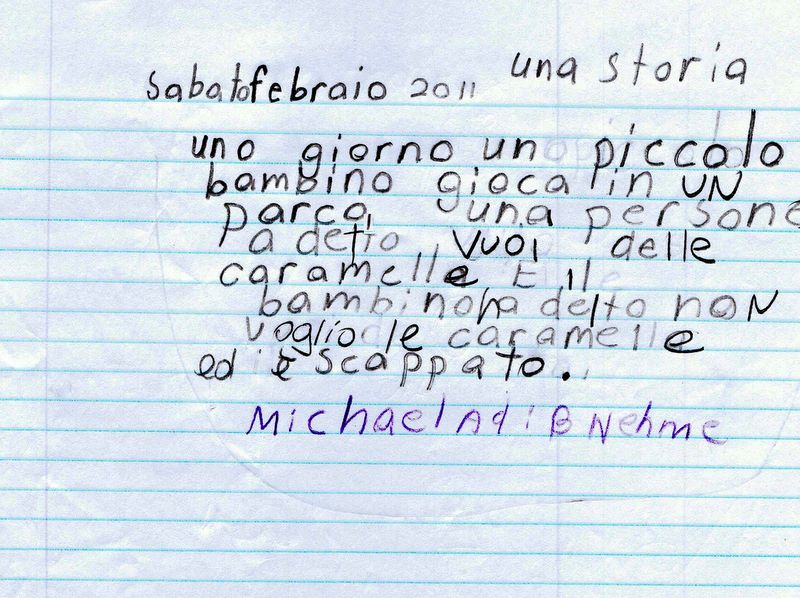 una storia
sabato febraio 2011
uno giorno un piccolo
bambino gioca in UN
parco, una persone
ha detto, vuoi delle
caramelle E il
bambino ha detto non
voglio le caramelle
ed è scappato.
Michael AdiB Nehme